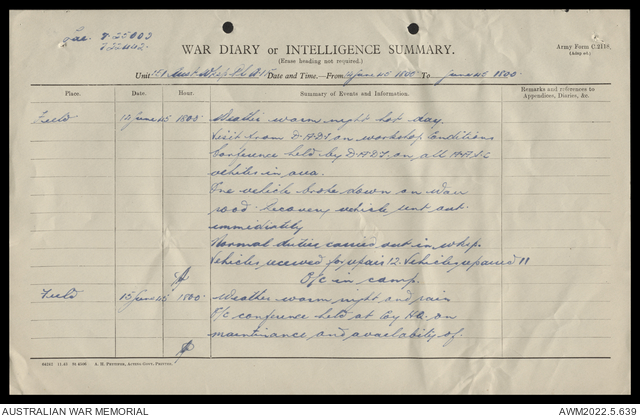 WAR DIARY or INTELLIGENCE SUMMARY.
(Erase heading not required.)
Army Form C.2118.
Unit Date and Time.—From 14 June 45 1800 To June 45 1800.
Place. Date. Hour. Summary of Events and Information. Remarks and references to Appendices, Diaries, &c.
Field 14 June 45 1800 Weather warm night hot day.
Visit from D.A.D.T. on workshop conditions
Conference held by D.A.D.T. on all
vehicles in area.
One vehicle broke down on
road recovery vehicle sent out
immediately
Normal duties carried out in wksp.
Vehicles received for repair 12. Vehicles repaired 11
O/c in camp.
Field 15 June 45 1800 Weather warm night and rain
O/c conference held at Coy HQ. on
maintenance and availability of.
AUSTRALIAN WAR MEMORIAL
AWM2022.5.639